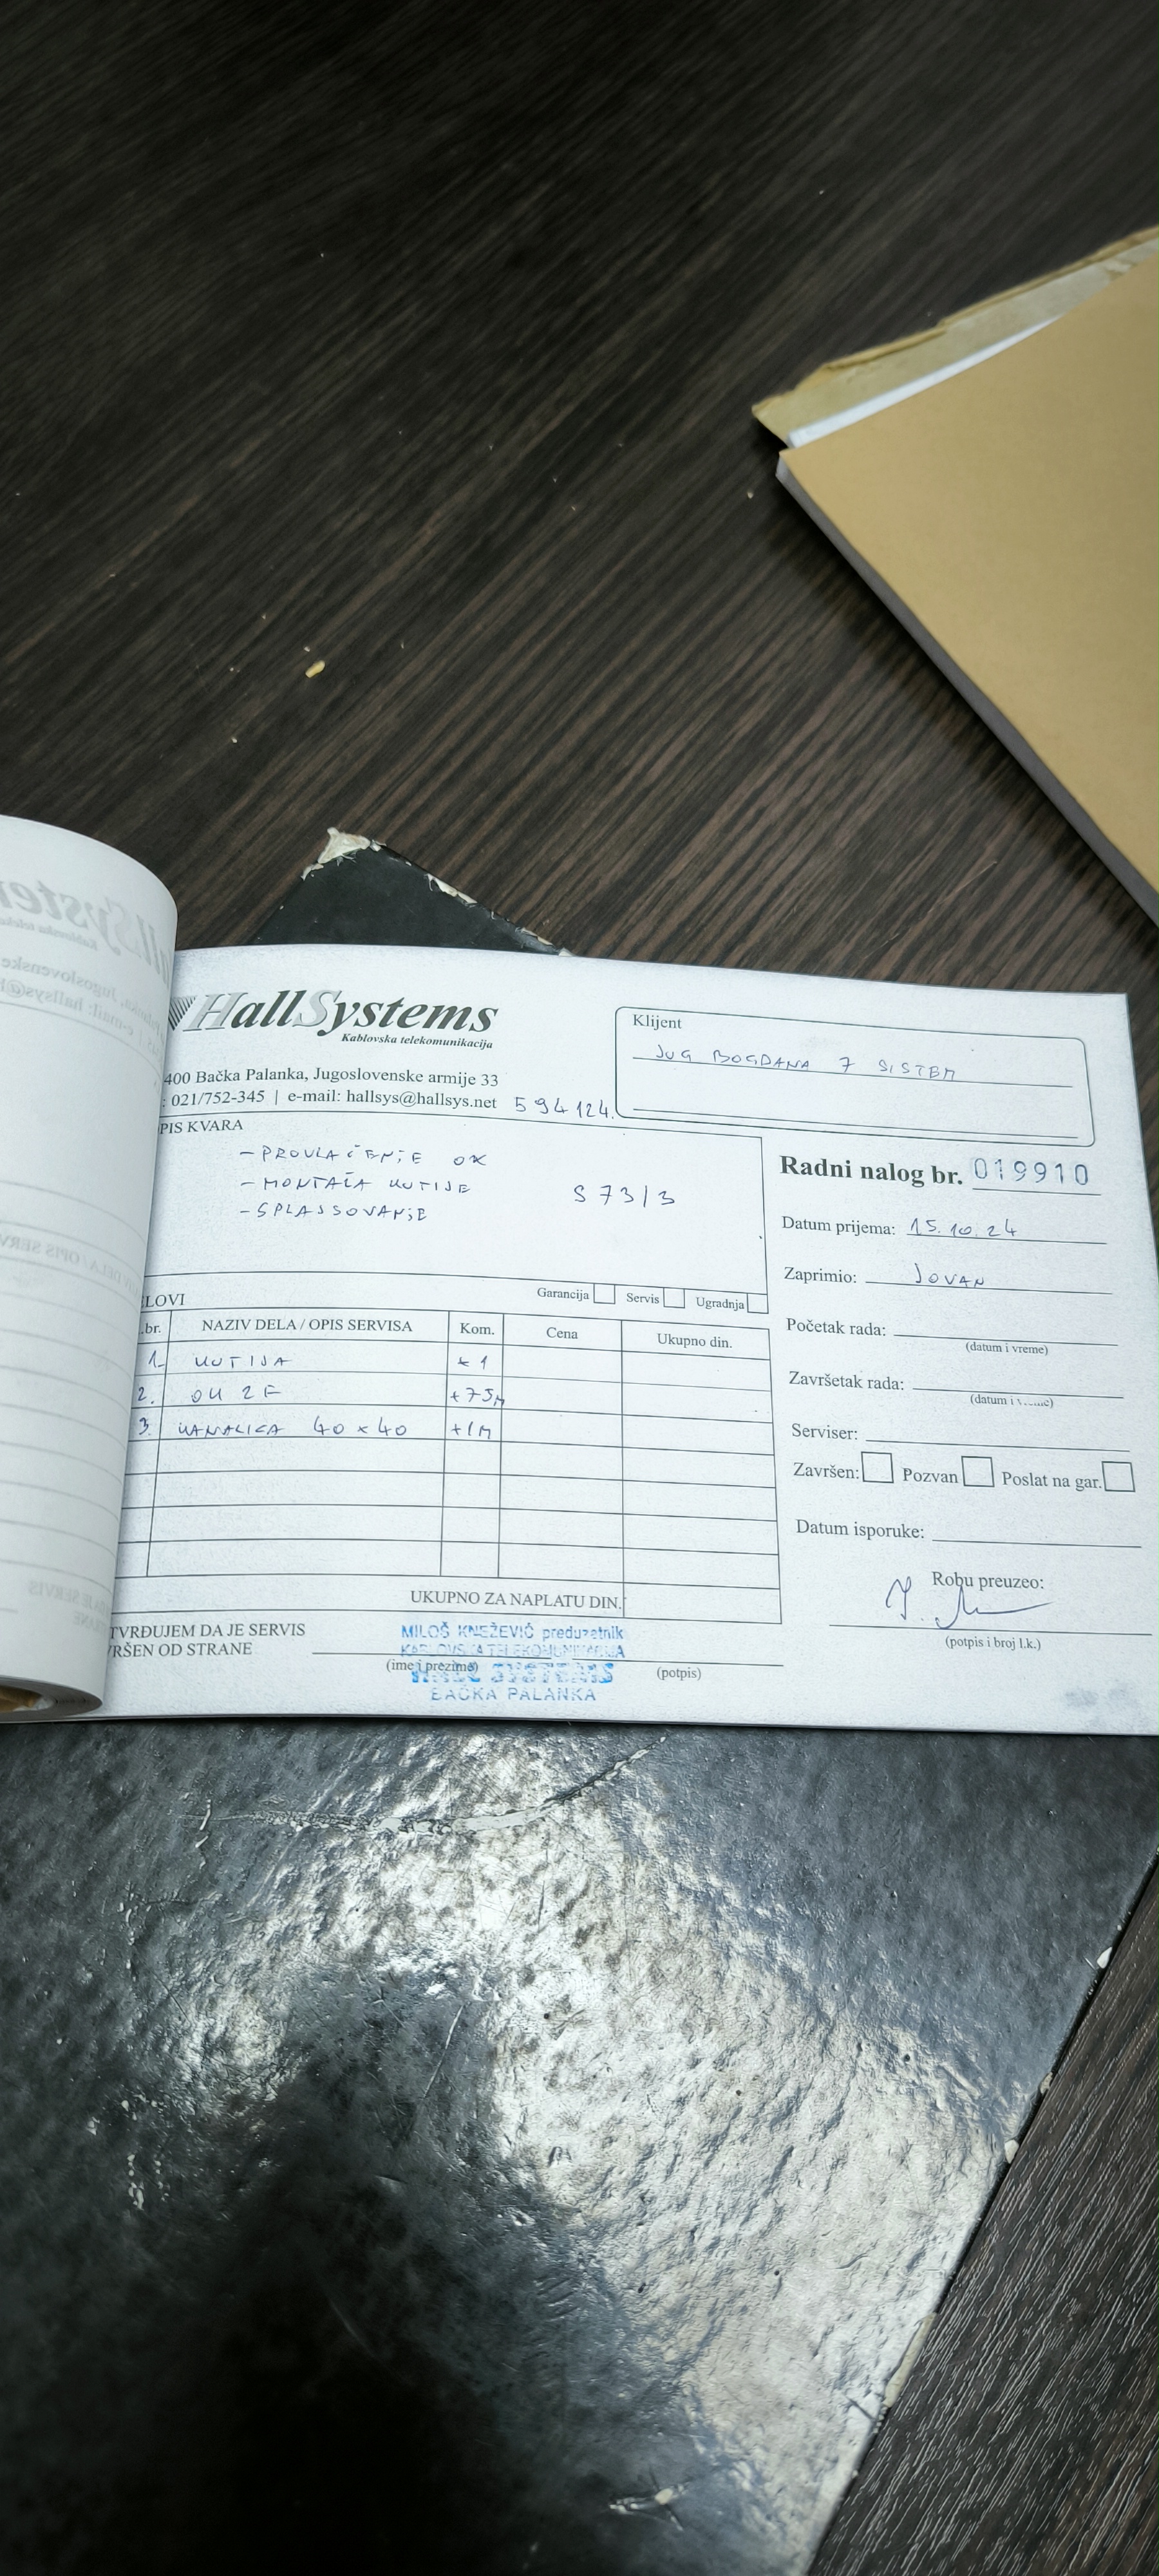 HallSystems
Kablovska telekomunikacija
400 Bačka Palanka, Jugoslovenske armije 33
: 021/752-345 | e-mail: hallsys@hallsys.net
594124.
Klijent
JUG BOGDANA 7 SISTEM
PIS KVARA
- PROVLAČENJE OK
- MONTAŽA KUTIJE
- SPLAJSOVANJE
S 73/3
Radni nalog br. 019910
Datum prijema: 15.10.24
Zaprimio: JOVAN
Početak rada:
(datum i vreme)
Završetak rada:
(datum i vreme)
Serviser:
Završen: Pozvan Poslat na gar.
Datum isporuke:
Robu preuzeo:
(potpis i broj l.k.)
ELOVI
Garancija Servis Ugradnja
.br. NAZIV DELA / OPIS SERVISA Kom. Cena Ukupno din.
1. KUTIJA × 1
2. OK 2F +75M
3. KANALICA 40 × 40 +1M
UKUPNO ZA NAPLATU DIN.
TVRĐUJEM DA JE SERVIS
RŠEN OD STRANE
(ime i prezime)
(potpis)
MILOŠ KNEŽEVIĆ preduzetnik
KABLOVSKA TELEKOMUNIKACIJA
HALL SYSTEMS
BAČKA PALANKA